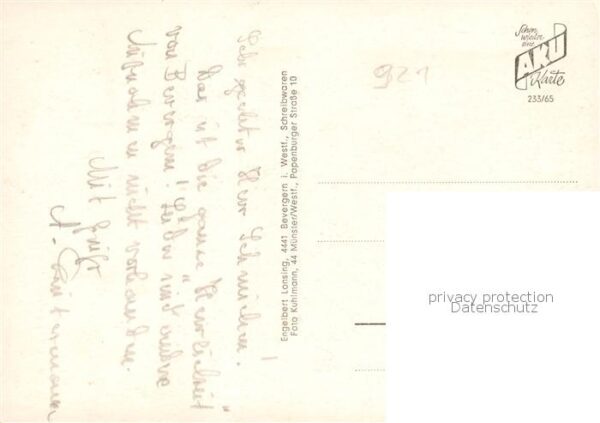 Sehr geehrter Herr Schnieders!
Das ist die ganze „Herrlichkeit"
von Bevergern! Leider sind andere
Aufnahmen nicht vorhanden.
Mit Gruß
A.
Engelbert Lansing, 4441 Bevergern i. Westf., Schreibwaren
Foto Kuhlmann, 44 Münster/Westf., Papenburger Straße 10
921
Schon
wieder
eine
AKU
Karte
233/65
privacy protection
Datenschutz